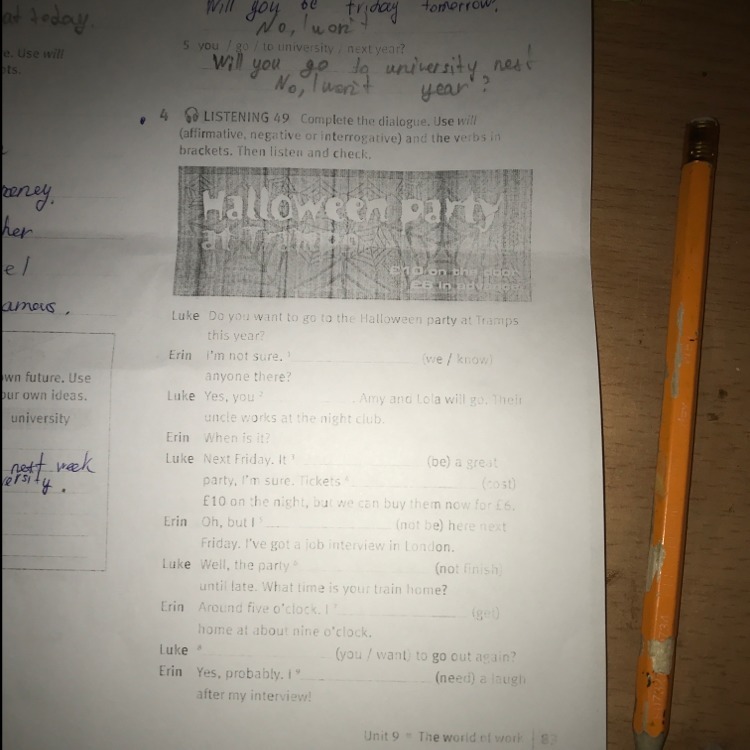 at today.
Will you be friday tomorrow.
No, I won't
e. Use will
5 you / go / to university / next year?
Will you go to university next
No, I won't year?
4 LISTENING 49 Complete the dialogue. Use will
(affirmative, negative or interrogative) and the verbs in
brackets. Then listen and check.
her
Halloween party
at Tramps
£10 on the door
£6 in advance
e!
amous.
Luke Do you want to go to the Halloween party at Tramps
this year?
Erin I'm not sure. 1 (we / know)
anyone there?
wn future. Use
our own ideas.
university
Luke Yes, you 2 . Amy and Lola will go. Their
uncle works at the night club.
Erin When is it?
next week
ersity.
Luke Next Friday. It 3 (be) a great
party, I'm sure. Tickets 4 (cost)
£10 on the night, but we can buy them now for £6.
Erin Oh, but I 5 (not be) here next
Friday. I've got a job interview in London.
Luke Well, the party 6 (not finish)
until late. What time is your train home?
Erin Around five o'clock. I 7 (get)
home at about nine o'clock.
Luke 8 (you / want) to go out again?
Erin Yes, probably. I 9 (need) a laugh
after my interview!
Unit 9 The world of work 83